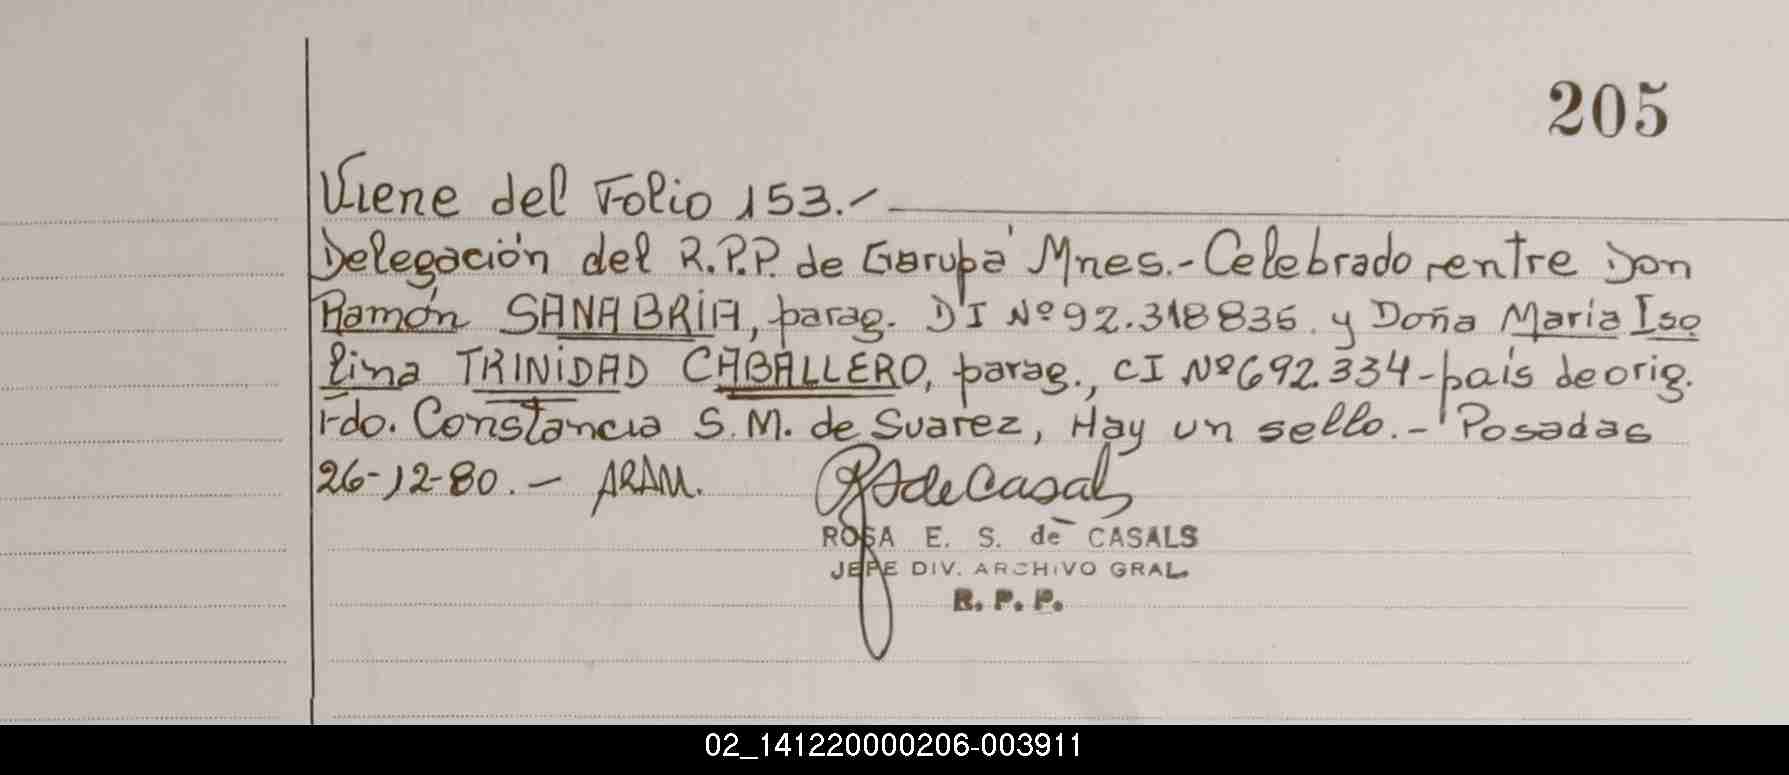 205
Viene del Folio 153.-
Delegación del R.P.P. de Garupá Mnes.- Celebrado entre Don
Ramón SANABRIA, parag. DI Nº 92.318835 y Doña Maria Iso
lina TRINIDAD CABALLERO, parag., CI Nº 692.334 - país de orig.
Fdo. Constancia S. M. de Suarez, Hay un sello.- Posadas
26-12-80.- ARAM.
de Casals
ROSA E. S. de CASALS
JEFE DIV. ARCHIVO GRAL.
R. P. P.
02_141220000206-003911